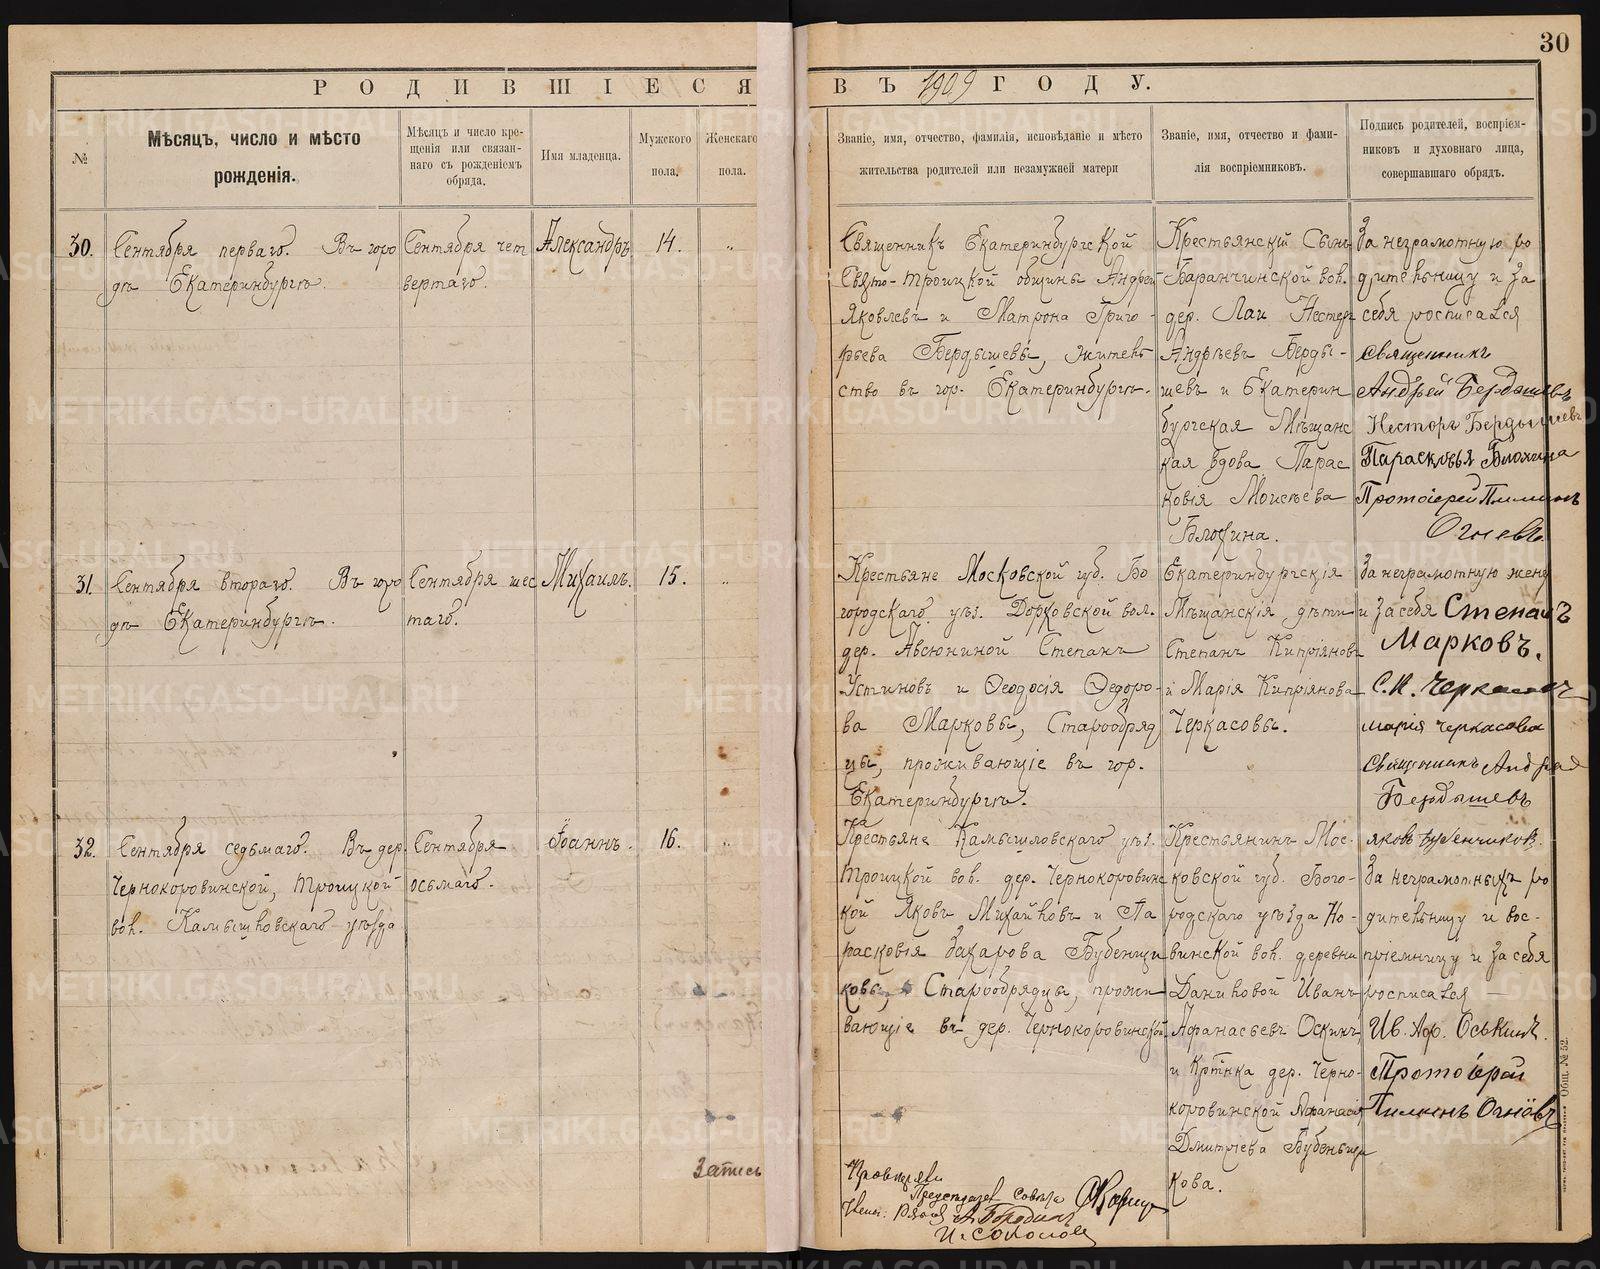 30
РОДИВШІЕСЯ ВЪ 1909 ГОДУ.
№
Мѣсяцъ, число и мѣсто
рожденія.
Мѣсяцъ и число кре-
щенія или связан-
наго съ рожденіемъ
обряда.
Имя младенца.
Мужского
пола.
Женскаго
пола.
Званіе, имя, отчество, фамилія, исповѣданіе и мѣсто
жительства родителей или незамужней матери
Званіе, имя, отчество и фами-
лія воспріемниковъ.
Подпись родителей, воспріем-
никовъ и духовнаго лица,
совершавшаго обрядъ.
30.
Сентября перваго. Въ горо
дѣ Екатеринбургѣ.
Сентября чет
вертаго.
Александръ
14.
„
Священникъ Екатеринбургской
Свято-Троицкой общины Андрей
Яковлевъ и Матрона Григо-
рьева Бердышевы, житель
ство въ гор. Екатеринбургѣ.
Крестьянскій Сынъ
Баранчинской вол.
дер. Лаи Нестеръ
Андрѣевъ Берды-
шевъ и Екатерин
бургская Мѣщанс
кая вдова Парас
ковія Моисѣева
Блохина.
За неграмотную ро
дительницу и за
себя росписался
священникъ
Андрей Бердышевъ
Несторъ Бердышевъ
Парасковья Блохина
Протоіерей Пименъ
Огневъ
31.
Сентября втораго. Въ горо
дѣ Екатеринбургѣ.
Сентября шес
таго.
Михаилъ.
15.
„
Крестьяне Московской губ. Бо
городскаго уѣз. Дорковской вол.
дер. Авсюниной Степанъ
Устиновъ и Феодосія Федоро-
ва Марковы, Старообряд
цы, проживающіе въ гор.
Екатеринбургѣ.
Екатеринбургскія
Мѣщанскія дѣти
Степанъ Кипріяновъ
и Марія Кипріянова
Черкасовы.
За неграмотную жену
и за себя Степанъ
Марковъ.
С. К. Черкасовъ
марія черкасова
Священникъ Андрей
Бердышевъ
32.
Сентября седьмаго. Въ дер.
Чернокоровинской, Троицкой
вол. Камышловскаго уѣзда
Сентября
осьмаго.
Іоаннъ.
16.
„
Крестьяне Камышловскаго уѣз.
Троицкой вол. дер. Чернокоровинс
кой Яковъ Михайловъ и Па
расковія Захарова Бубенщи
ковы, Старообрядцы, прожи-
вающіе въ дер. Чернокоровинской
Крестьянинъ Мос-
ковской губ. Бого-
родскаго уѣзда Но-
винской вол. деревни
Даниловой Иванъ
Афанасьевъ Оскинъ
и Крт̃нка дер. Черно-
коровинской Афанасія
Дмитріева Бубенщи
кова.
яковъ бубенчиковъ.
За неграмотныхъ ро
дительницу и вос-
пріемницу и за себя
росписался —
Ив. Аф. Оськинъ.
Протоіерей
Пименъ Огнёвъ
Запись
Провѣряли
Председател Совѣта
А. Бородинъ
И. Соколовъ
METRIKI.GASO-URAL.RU